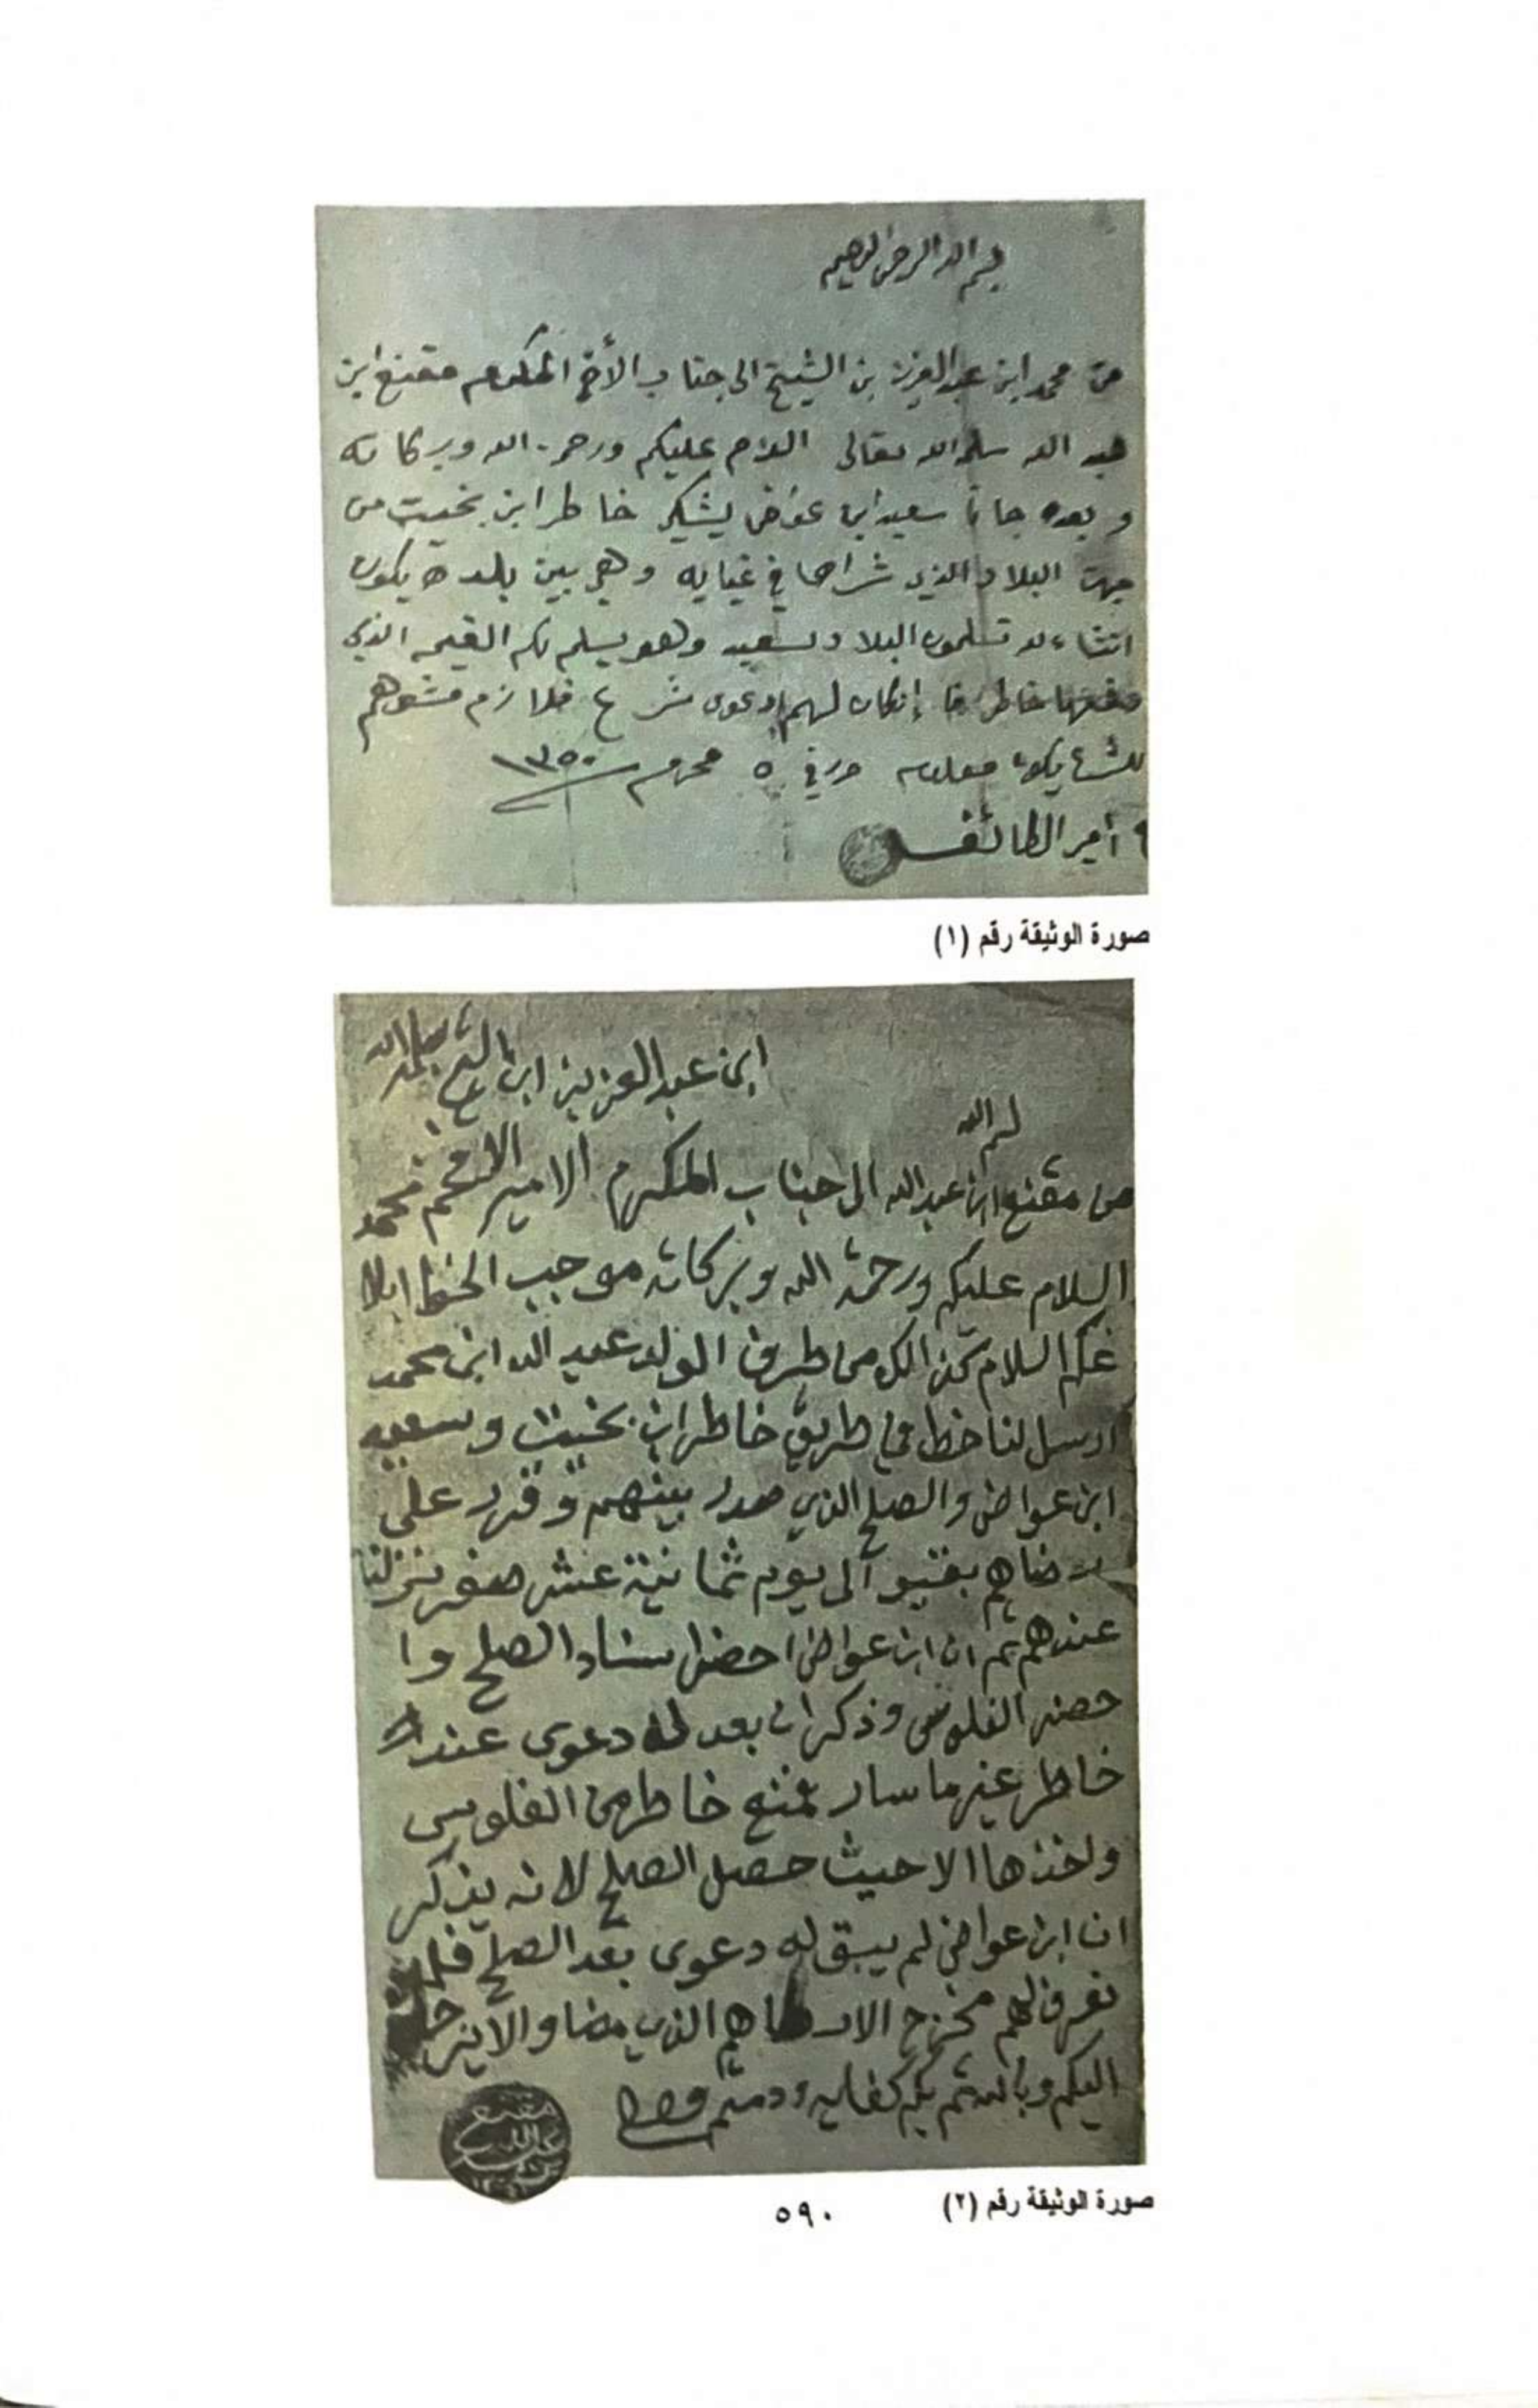 بسم الله الرحمن الرحيم
من محمد ابن عبدالعزيز بن الشيخ الى جناب الأخ المكرم مقنع ابن
عبد الله سلمه الله تعالى السلام عليكم ورحمة الله وبركاته
وبعده جانا سعيد ابن عواض يشكي خاطر ابن بخيت من
جهة البلاد الذي شراها في غيابه وهي بين بلده يكون
انشاء الله تسلمون البلاد لسعيد وهو يسلم لكم القيمه الذي
خاطر إنكان لهم دعوى شرع فلازم
للشرع يكون معلوم حرر في ٥ محرم ١٣٥٠
أمير الطائف
صورة الوثيقة رقم (١)
ابن عبد العزيز ابن الشيخ سلمه الله
بسم الله
من مقنع ابن عبدالله الى جناب المكرم الامير الافخم محمد
السلام عليكم ورحمة الله وبركاته موجب الخط ابلا
غكم السلام كذالك من طرف الولد عبد الله ابن محمد
ارسل لنا خط في طريق خاطر ابن بخيت وسعيد
ابن عواض والصلح الذي صدر بينهم وقرر على
رضاهم الى يوم ثمانية عشر صفر
عندهم ثم ان ابن عواض احضر اسناد الصلح وا
حضر الفلوس وذكر ان بعد له دعوى عند
خاطر غير ما سار خاطر من الفلوس
ولخذها الا حيث حصل الصلح لانه يذكر
ان ابن عواض لم يبق له دعوى بعد الصلح فلم
نعرف لهم مخرج الا الذي مضا والا
اليكم وبالله ثم بكم كفايه ودمتم
صورة الوثيقة رقم (٢)
٥٩٠